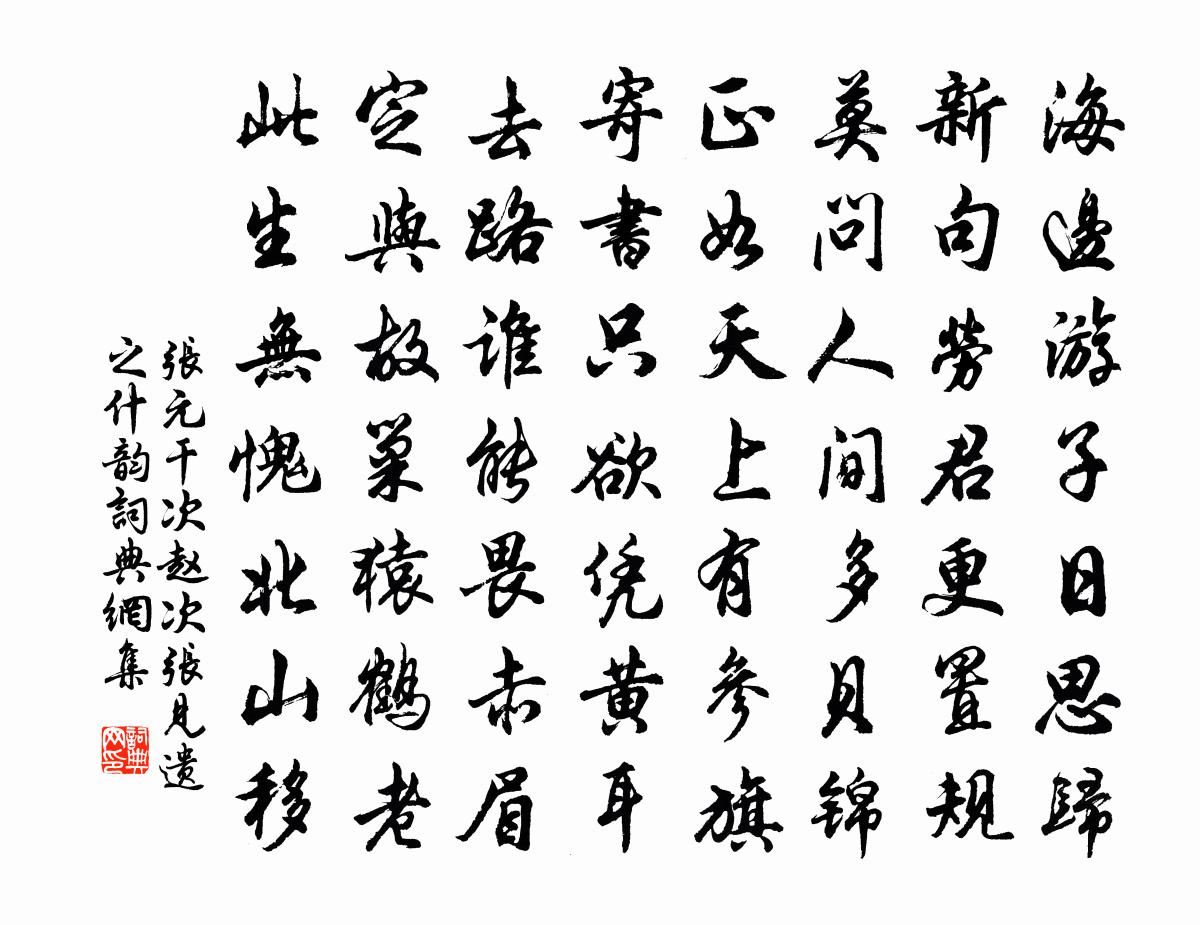 海邊游子日思歸
新句勞君更置規
莫問人間多貝錦
正如天上有參旗
寄書只欲凭黄耳
去路誰能畏赤眉
定與故巢猿鶴老
此生無愧北山移
張元干次赵次張見遺
之什韵詞典網集
詞典网印